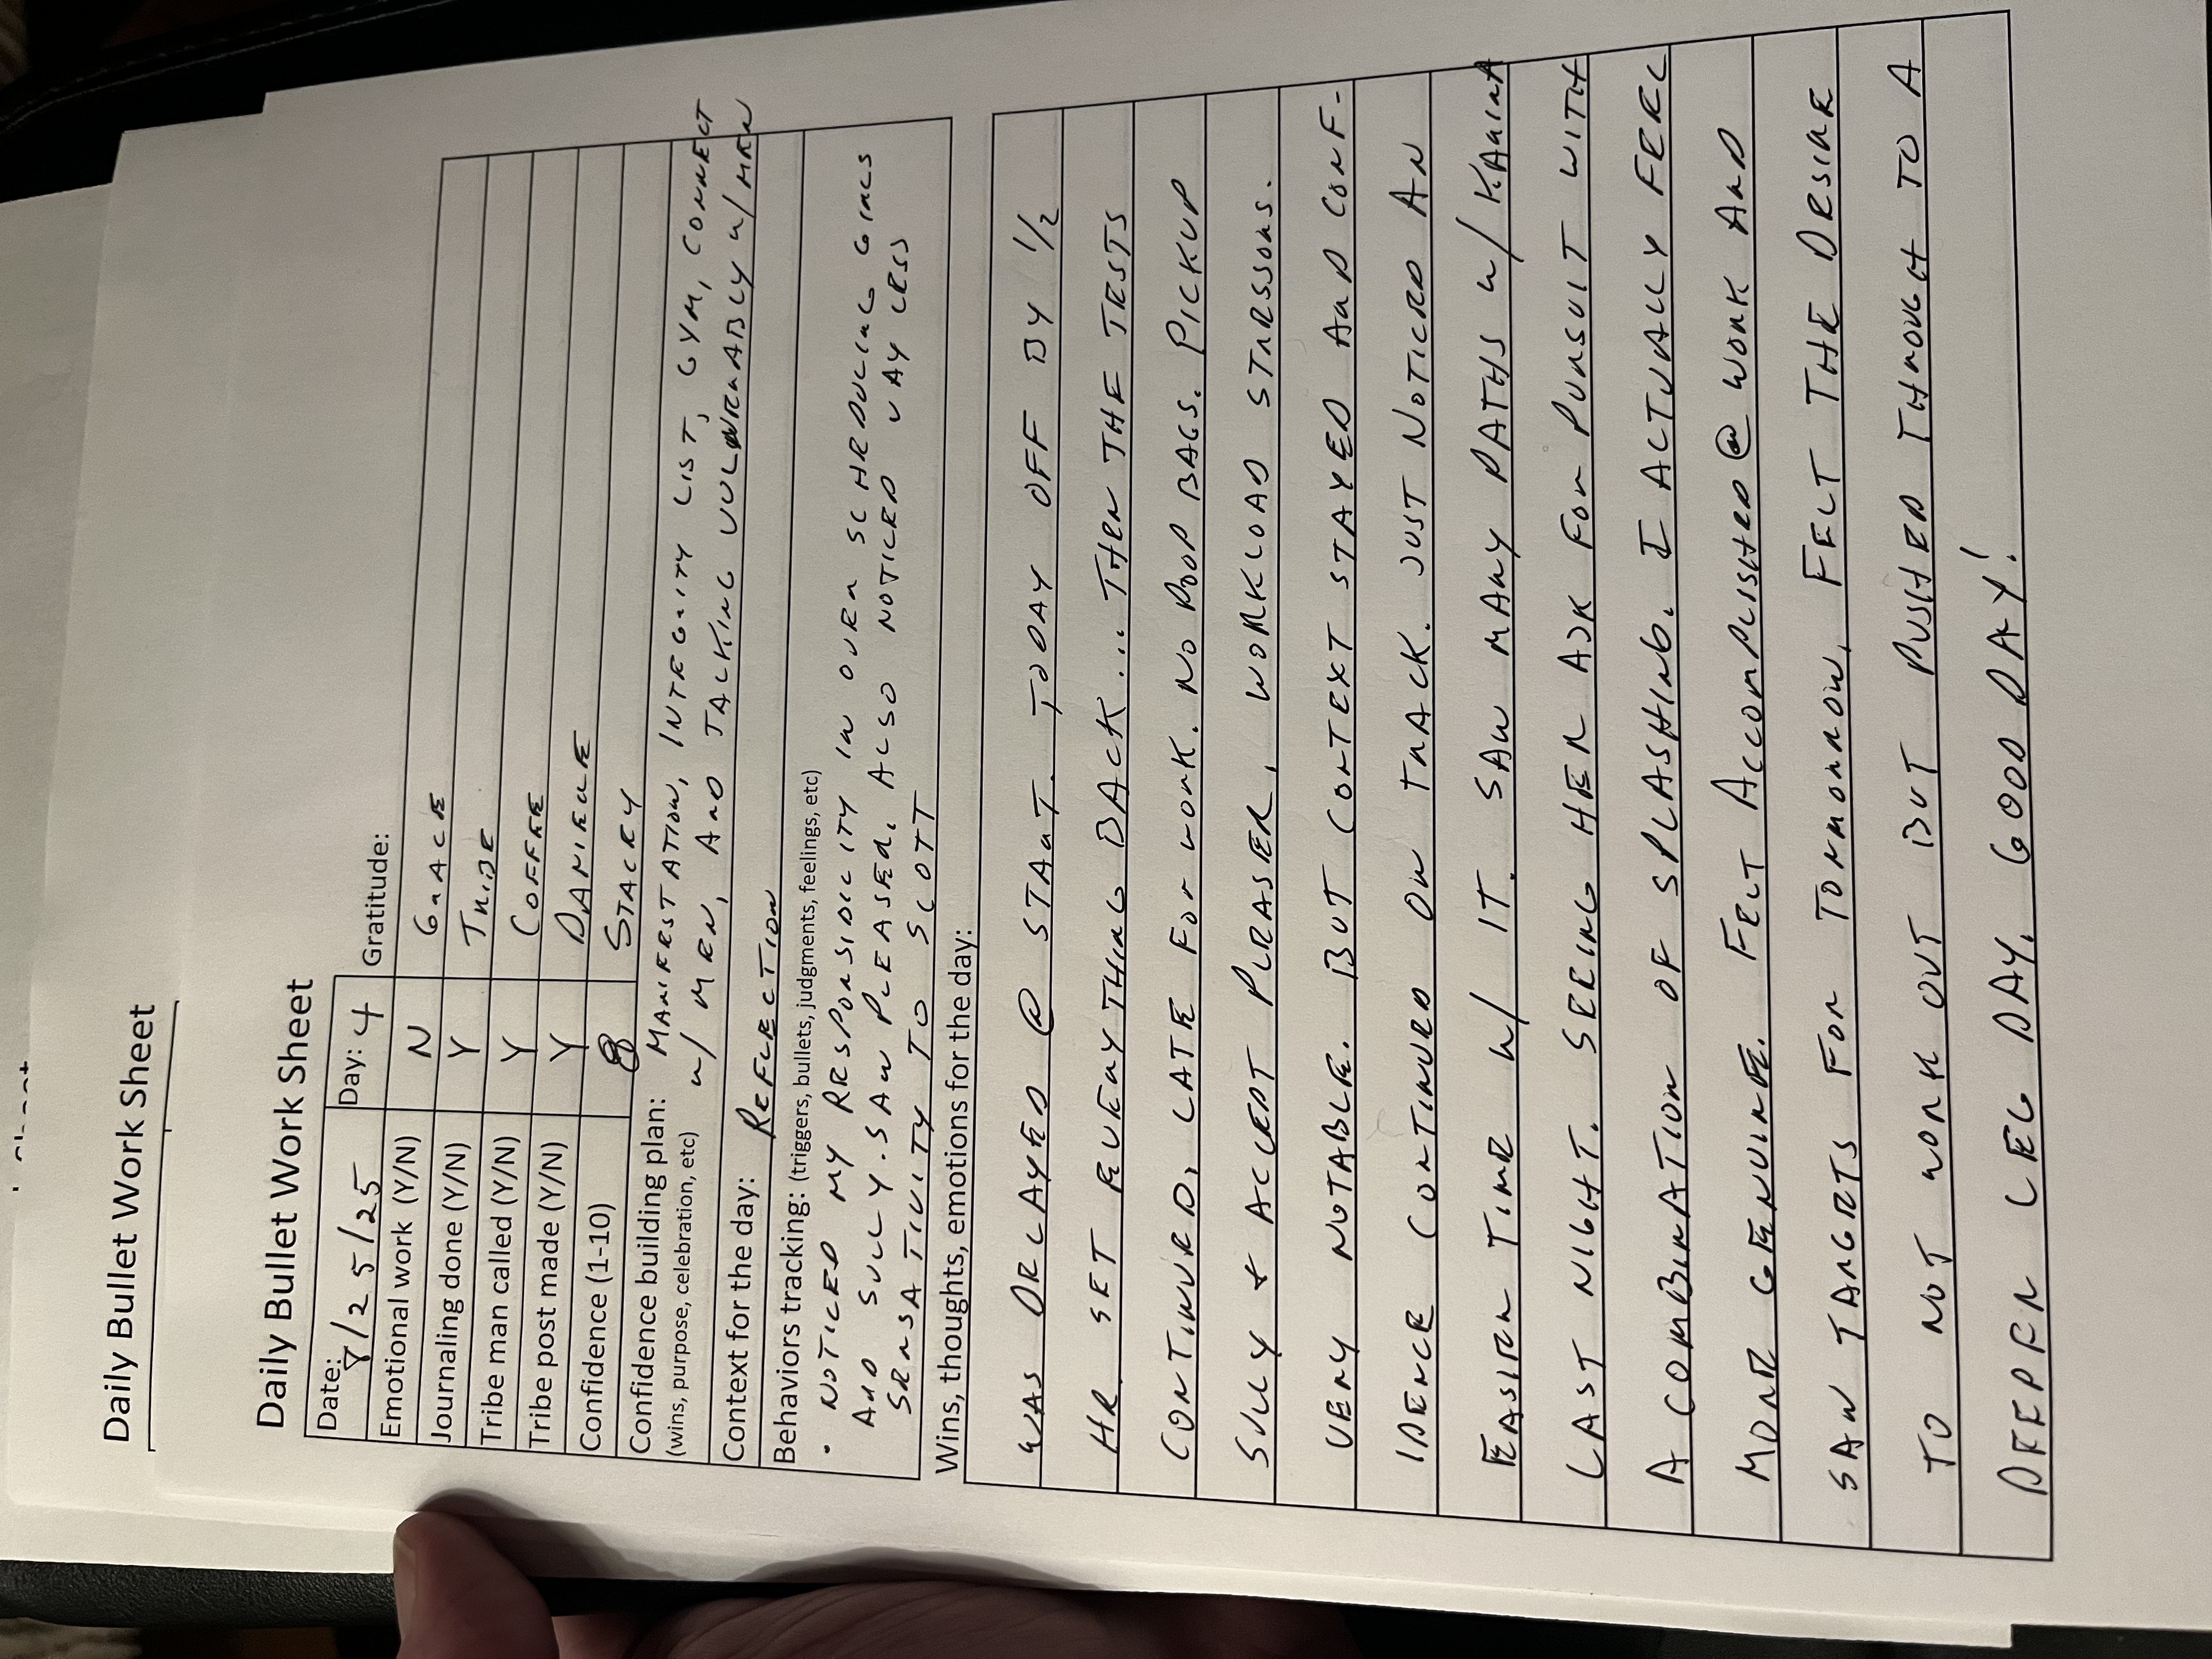 Daily Bullet Work Sheet
Daily Bullet Work Sheet
Date: 8/25/25 Day: 4 Gratitude:
Emotional work (Y/N) N GRACE
Journaling done (Y/N) Y TRIBE
Tribe man called (Y/N) Y COFFEE
Tribe post made (Y/N) Y DANIELLE
Confidence (1-10) 8 STACEY
Confidence building plan: MANIFESTATION, INTEGRITY LIST, GYM, CONNECT
(wins, purpose, celebration, etc) w/ MEN, AND TALKING VULNERABLY w/ MEN
Context for the day: REFLECTION
Behaviors tracking: (triggers, bullets, judgments, feelings, etc)
• NOTICED MY RESPONSIBILITY IN OVER SCHEDULING GIRLS
AND SULLY. SAW PLEASER. ALSO NOTICED WAY LESS
SENSATIVITY TO SCOTT
Wins, thoughts, emotions for the day:
WAS DELAYED @ START. TODAY OFF BY 1/2
HR SET EVERYTHING BACK... THEN THE TESTS
CONTINUED, LATE FOR WORK. NO POOP BAGS. PICKUP
SULLY + ACCEPT PLEASER, WORKLOAD STRESSORS.
VERY NOTABLE. BUT CONTEXT STAYED AND CONF-
IDENCE CONTINUED ON TRACK. JUST NOTICED AN
EASIER TIME w/ IT. SAW MANY PATHS w/
LAST NIGHT. SEEING HER ASK FOR PURSUIT WITH
A COMBINATION OF SPLASHING. I ACTUALLY FEEL
MORE GENUINE. FELT ACCOMPLISHED @ WORK AND
SAW TARGETS FOR TOMORROW. FELT THE DESIRE
TO NOT WORK OUT BUT PUSHED THROUGH TO A
DEEPER LEG DAY. GOOD DAY!